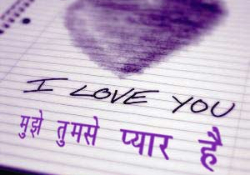 I LOVE YOU
मुझे तुमसे प्यार है